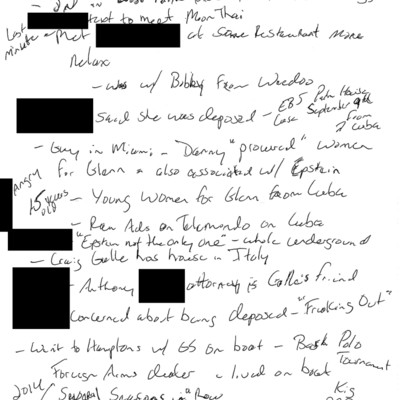 - 2nd in
Last minute text to meet Moon Thai
- Met at some Restaurant more
Relax
- was w/ Bobby From Weedoo
said she was deposed - EBS Palm House Case September 9th
2 from Cuba
- Guy in Miami - Danny "procured" women
for Glenn & also associated w/ Epstein
Angry
15 years old - Young Women for Glenn from Cuba
- Ran Ads on Telemondo on Cuba
"Epstein not the only one" - whole underground
- Craig Galle has house in Italy
- Anthony attorney is Galle's friend
concerned about being deposed - "Freaking Out"
- Went to Hamptons w/ GS on boat - Bash Polo Tournament
Foreign Arms dealer - lived on boat
2014 / Several in a Row